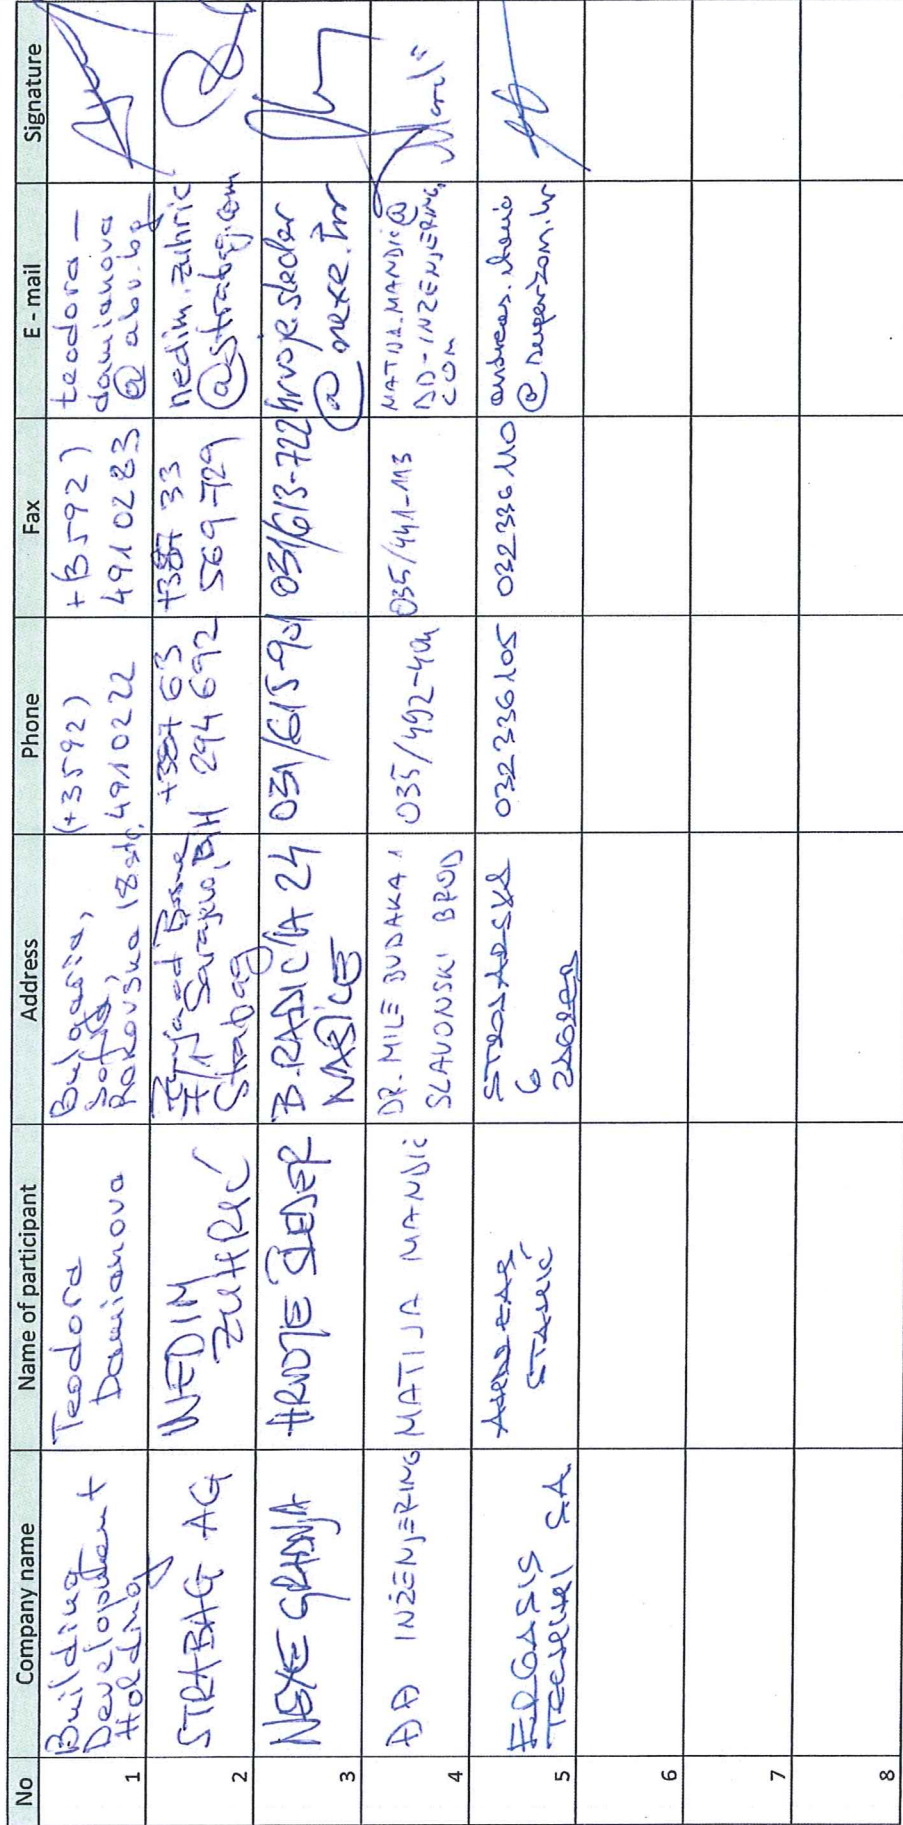 No
Company name
Name of participant
Address
Phone
Fax
E - mail
Signature
1
Building
Development
Holding
Teodora
Damianova
Bulgaria,
Sofia,
Rakovska 18 str.
(+3592)
4910222
+(3592)
4910283
teodora -
damianova
@ abv.bg
2
STRABAG AG
NEDIM
ZUHRIĆ
Sarajevo, BiH
Strabag
+387 63
294 692
+387 33
569-729
nedim.zuhric
@strabag.com
3
NEXE GRADNJA
HRVOJE ŠLEDER
B. RADIĆA 24
NAŠICE
031/615-901
031/613-722
hrvoje.sleder
@nexe.hr
4
DD INŽENJERING
MATIJA MANDIĆ
DR. MILE BUDAKA 1
SLAVONSKI BROD
035/492-404
035/441-113
MATIJA.MANDIC@
DD-INZENJERING.
COM
5
S.A.
6
ZAGREB
032336105
032336110
6
7
8